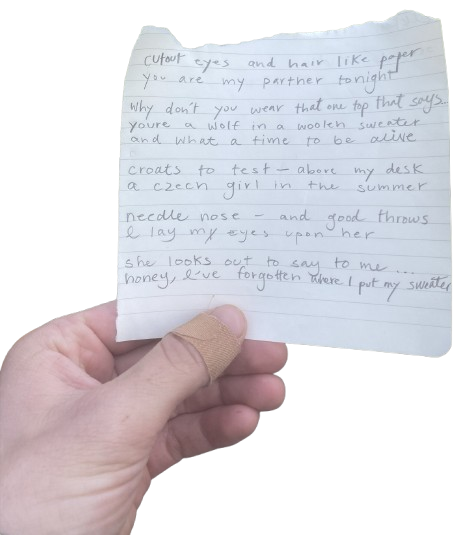 cutout eyes and hair like paper
you are my partner tonight
Why don't you wear that one top that says
youre a wolf in a woolen sweater
and what a time to be alive
croats to test – above my desk
a czech girl in the summer
needle nose – and good throws
I lay my eyes upon her
she looks out to say to me...
honey, I've forgotten where I put my sweater